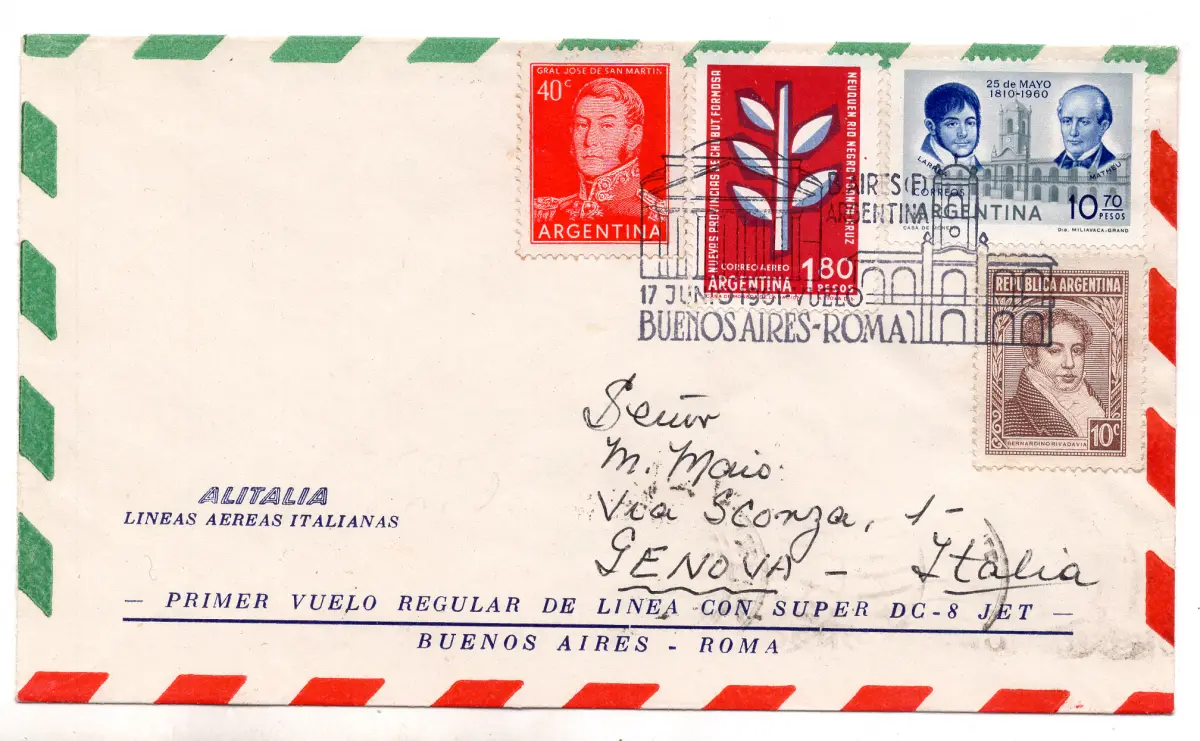 GRAL JOSE DE SAN MARTIN
40c
ARGENTINA
NUEVOS PROVINCIAS DE CHUBUT, FORMOSA
NEUQUEN RIO NEGRO Y SANTA CRUZ
CORREO AEREO
ARGENTINA
1.80
PESOS
25 de MAYO
1810-1960
LARREA
MATHEU
CORREOS
ARGENTINA
10.70
PESOS
CASA DE MONEDA
Dis. MILIAVACA-GRAND
B. AIRES (F)
ARGENTINA
17 JUNIO VUELO
BUENOS AIRES-ROMA
REPUBLICA ARGENTINA
BERNARDINO RIVADAVIA
10c
Señor
M. Maio
Via Sconza, 1-
GENOVA - Italia
ALITALIA
LINEAS AEREAS ITALIANAS
— PRIMER VUELO REGULAR DE LINEA CON SUPER DC-8 JET —
BUENOS AIRES - ROMA